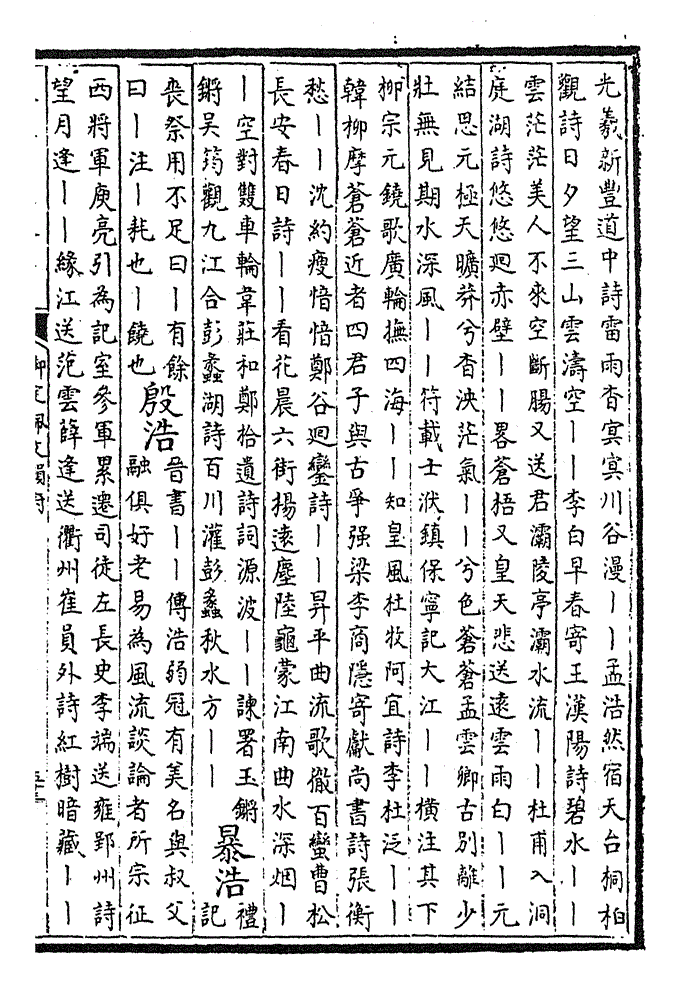 光羲新豐道中詩雷雨杳冥冥川谷漫丨丨孟浩然宿天台桐柏
觀詩日夕望三山雲濤空丨丨李白早春寄王漢陽詩碧水丨丨
雲茫茫美人不來空斷腸又送君灞陵亭灞水流丨丨杜甫入洞
庭湖詩悠悠迴赤壁丨丨畧蒼梧又皇天悲送遠雲雨白丨丨元
結思元極天曠莽兮杳泱茫氣丨丨兮色蒼蒼孟雲卿古别離少
壯無見期水深風丨丨符載土洑鎮保寧記大江丨丨橫注其下
柳宗元鐃歌廣輪撫四海丨丨知皇風杜牧阿宜詩李杜泛丨丨
韓柳摩蒼蒼近者四君子與古爭强梁李商隱寄獻尚書詩張衡
愁丨丨沈約瘦愔愔鄭谷迴鑾詩丨丨昇平曲流歌徹百蠻曹松
長安春日詩丨丨看花晨六街揚遠塵陸龜蒙江南曲水深烟丨
丨空對雙車輪韋莊和鄭拾遺詩詞源波丨丨諫署玉鏘
鏘吳筠觀九江合彭蠡湖詩百川灌彭蠡秋水方丨丨
暴浩
禮
記
喪祭用不足曰丨有餘
曰丨注丨耗也丨饒也
殷浩
晉書丨丨傳浩弱冠有美名與叔父
融俱好老易為風流談論者所宗征
西將軍庾亮引為記室參軍累遷司徒左長史李端送雍郢州詩
望月逢丨丨緣江送范雲薛逢送衢州崔員外詩紅樹暗藏丨丨
御定佩文韻府